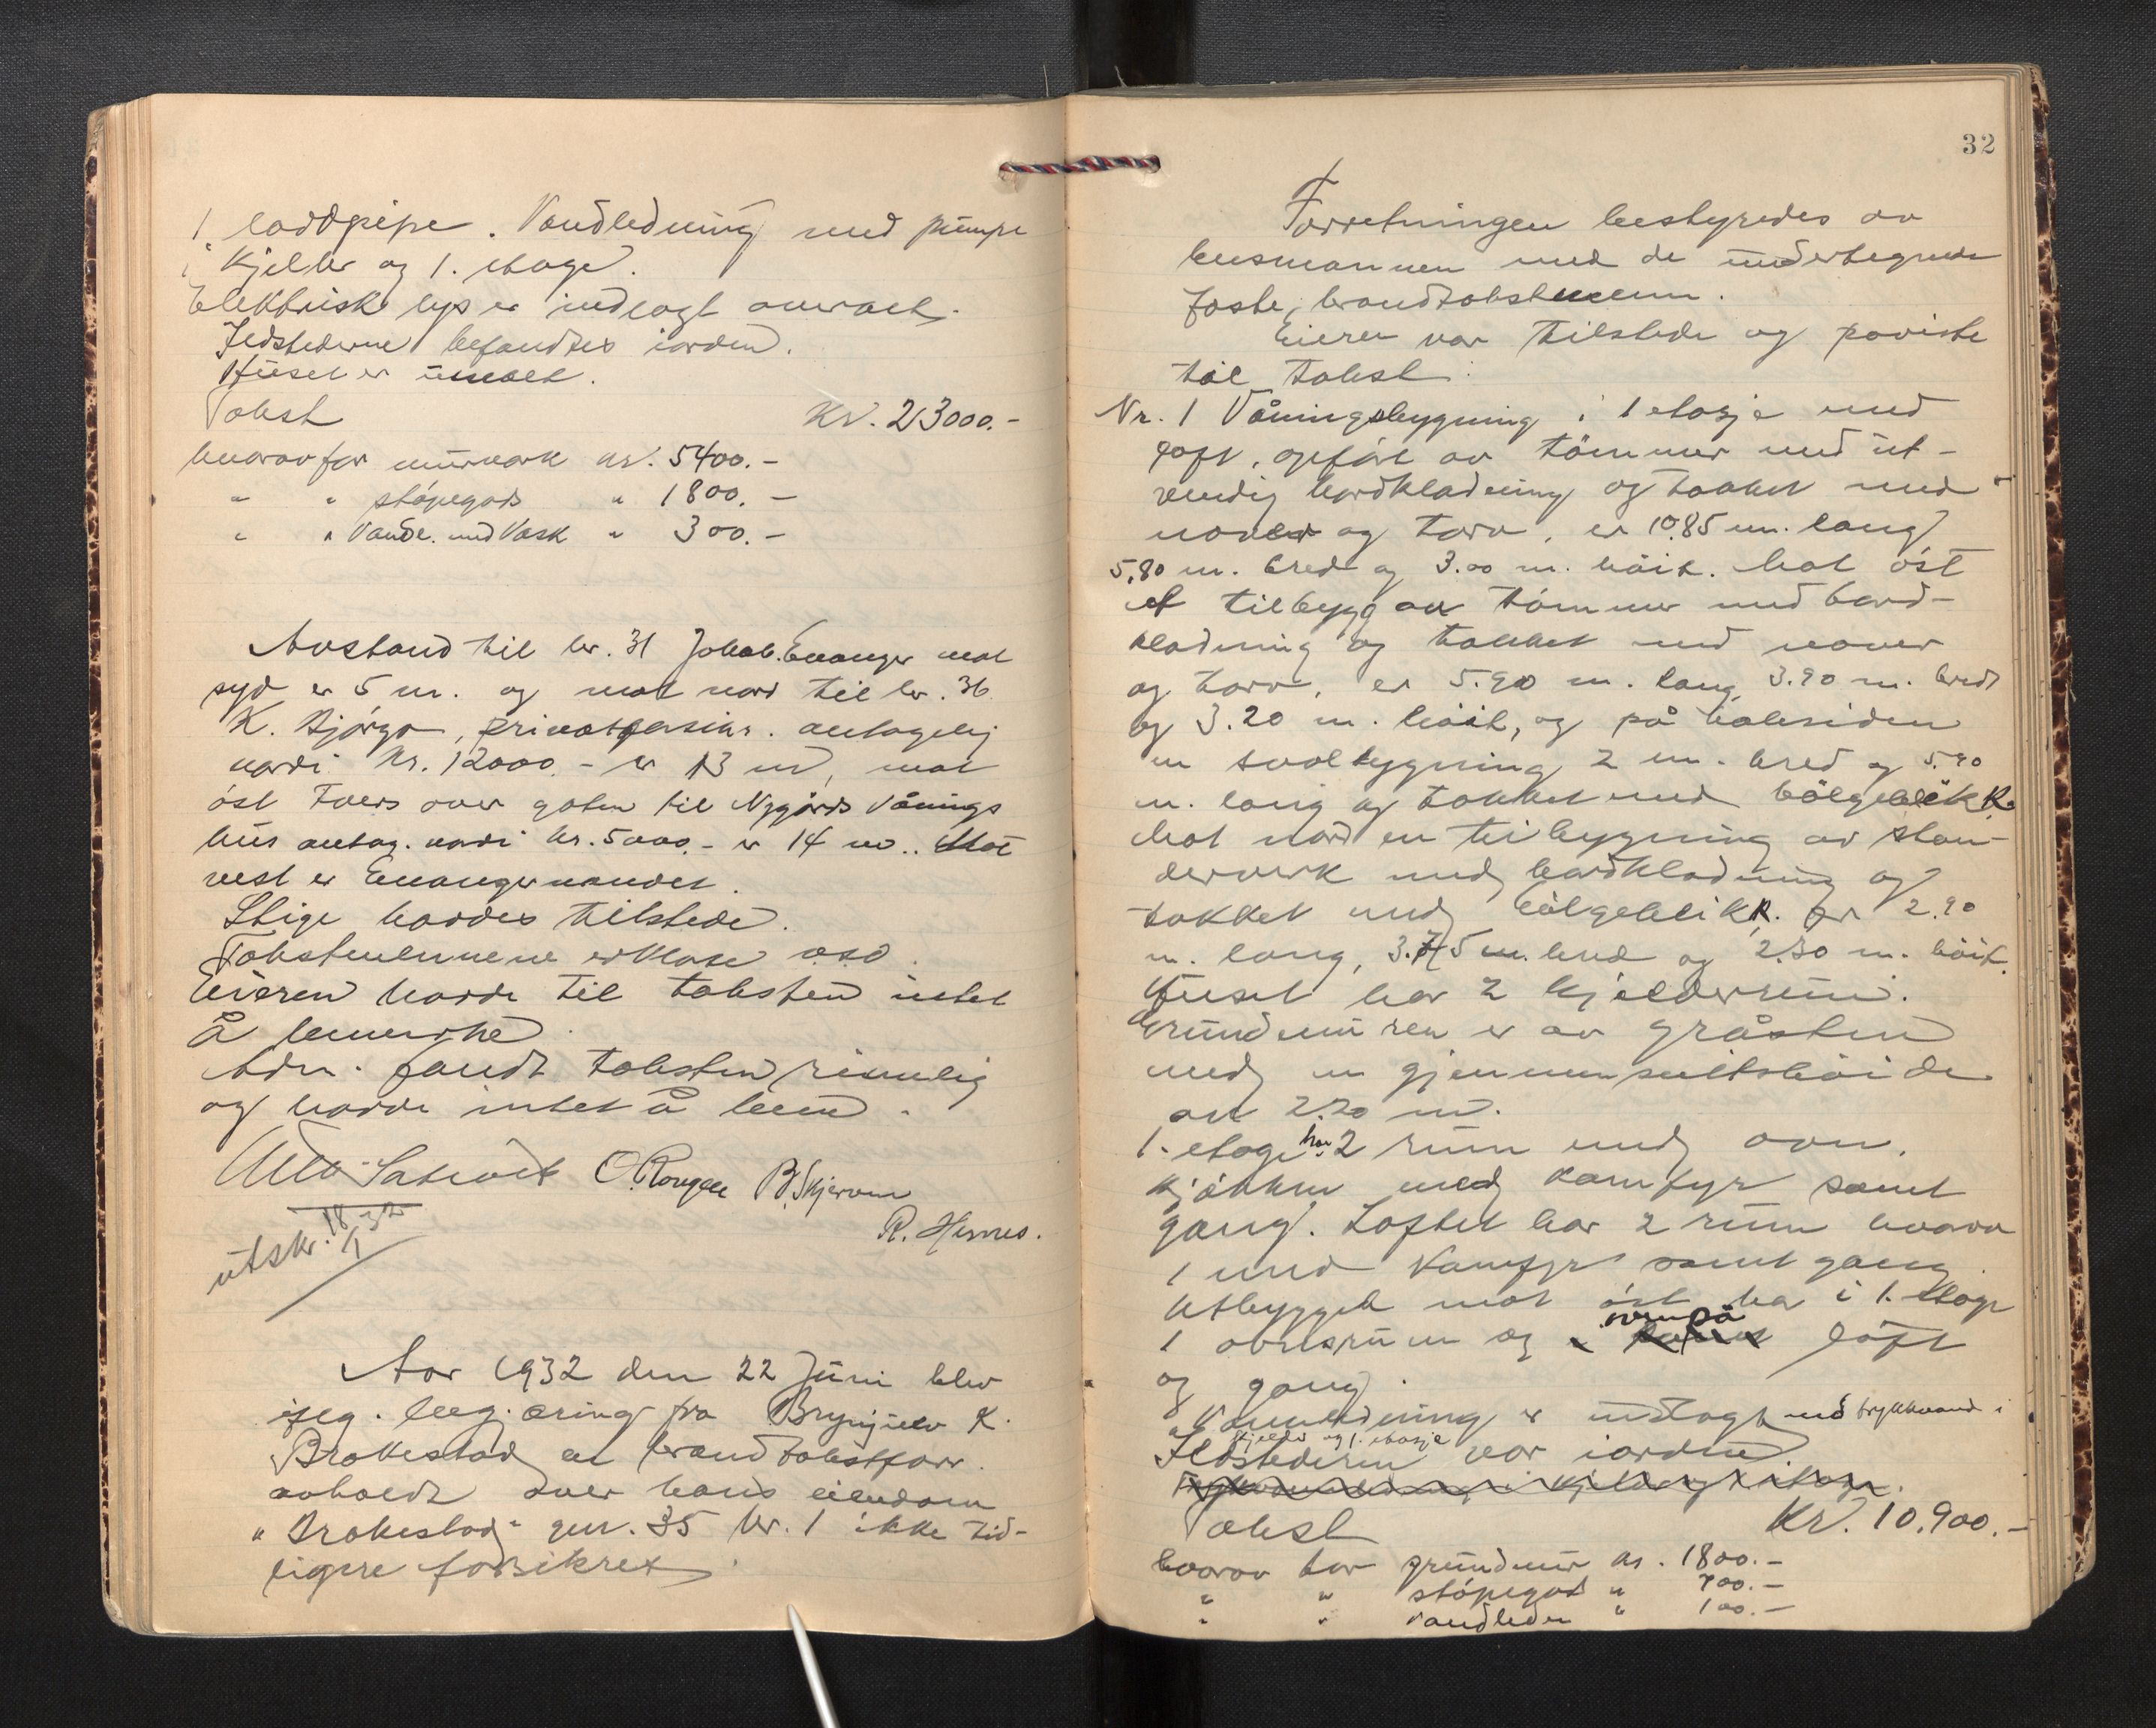 1 loddpipe. Vandledning med pumpe
i kjeller og 1. etage.
Elektrisk lys er indlagt overalt.
Ildstederne befandtes iorden.
Huset er umalt.
Takst Kr. 23000.-
hvorav for murverk kr. 5400.-
" " støpegods " 1800.-
" " Vandl. med Vask " 300.-
Avstand til br. 31 Jakob Evanger mot
syd er 5 m. og mot nord til br. 36
K. Bjørgo, privatassikr. antagelig
verdi kr. 12000.- er 13 m, mot
øst tvers over gaten til Nygårds vånings
hus antag. verdi kr. 5000.- er 14 m. Mot
vest er Evangervandet.
Stige havdes tilstede.
Takstmennene erklære osv.
Eieren hadde til taksten intet
å bemerke.
Adm. fandt taksten rimelig
og hadde intet å bem.
O. Rongen B. Skjerven
R. Hernes.
utskr. 18/1 32
Aar 1932 den 22 Juni blev
efg. beg.æring fra Brynjulv K.
Brakestad en brandtakstforr.
avholdt over hans eiendom
"Brakestad" gnr. 35 br. 1 ikke tid-
ligere forsikret.
32
Forretningen bestyredes av
lensmannen med de undertegnede
faste brandtakstmenn.
Eieren var tilstede og påviste
til takst:
Nr. 1 Våningsbygning i 1 etasje med
loft, opført av tømmer med ut-
vendig bordkledning og tækket med
never og torv, er 10.85 m. lang
5,80 m. bred og 3.00 m. høit. Mot øst
et tilbygg av tømmer med bord-
kledning og tækket med never
og torv, er 5.90 m. lang, 3.90 m. bred
og 3.20 m. høit, og på baksiden
en svalbygning 2 m. bred og 5.90
m. lang og tækket med bølgeblikk.
Mot nord en tilbygning av sten-
derverk med bordkledning og
tækket med bølgeblikk. Er 2.90
m. lang, 3.75 m. bred og 2.30 m. høit.
Huset har 2 kjelderrum.
Grundmuren er av gråsten
med en gjennemsnitshøide
av 2.20 m.
1. etage har 2 rum med ovn,
kjøkken med komfyr samt
gang. Loftet har 2 rum hvorav
1 med komfyr samt gang.
Utbygget mot øst har i 1. etage
1 ovnsrum og ovenpå loft
og gang.
Vannledning er indlagt med trykkvand i
kjelder og 1. etasje
Ildstederne var iorden.
Takst Kr. 10.900.-
hvorav for grundmur kr. 1800.-
" " støpegods " 700.-
" " vandleden " 100.-